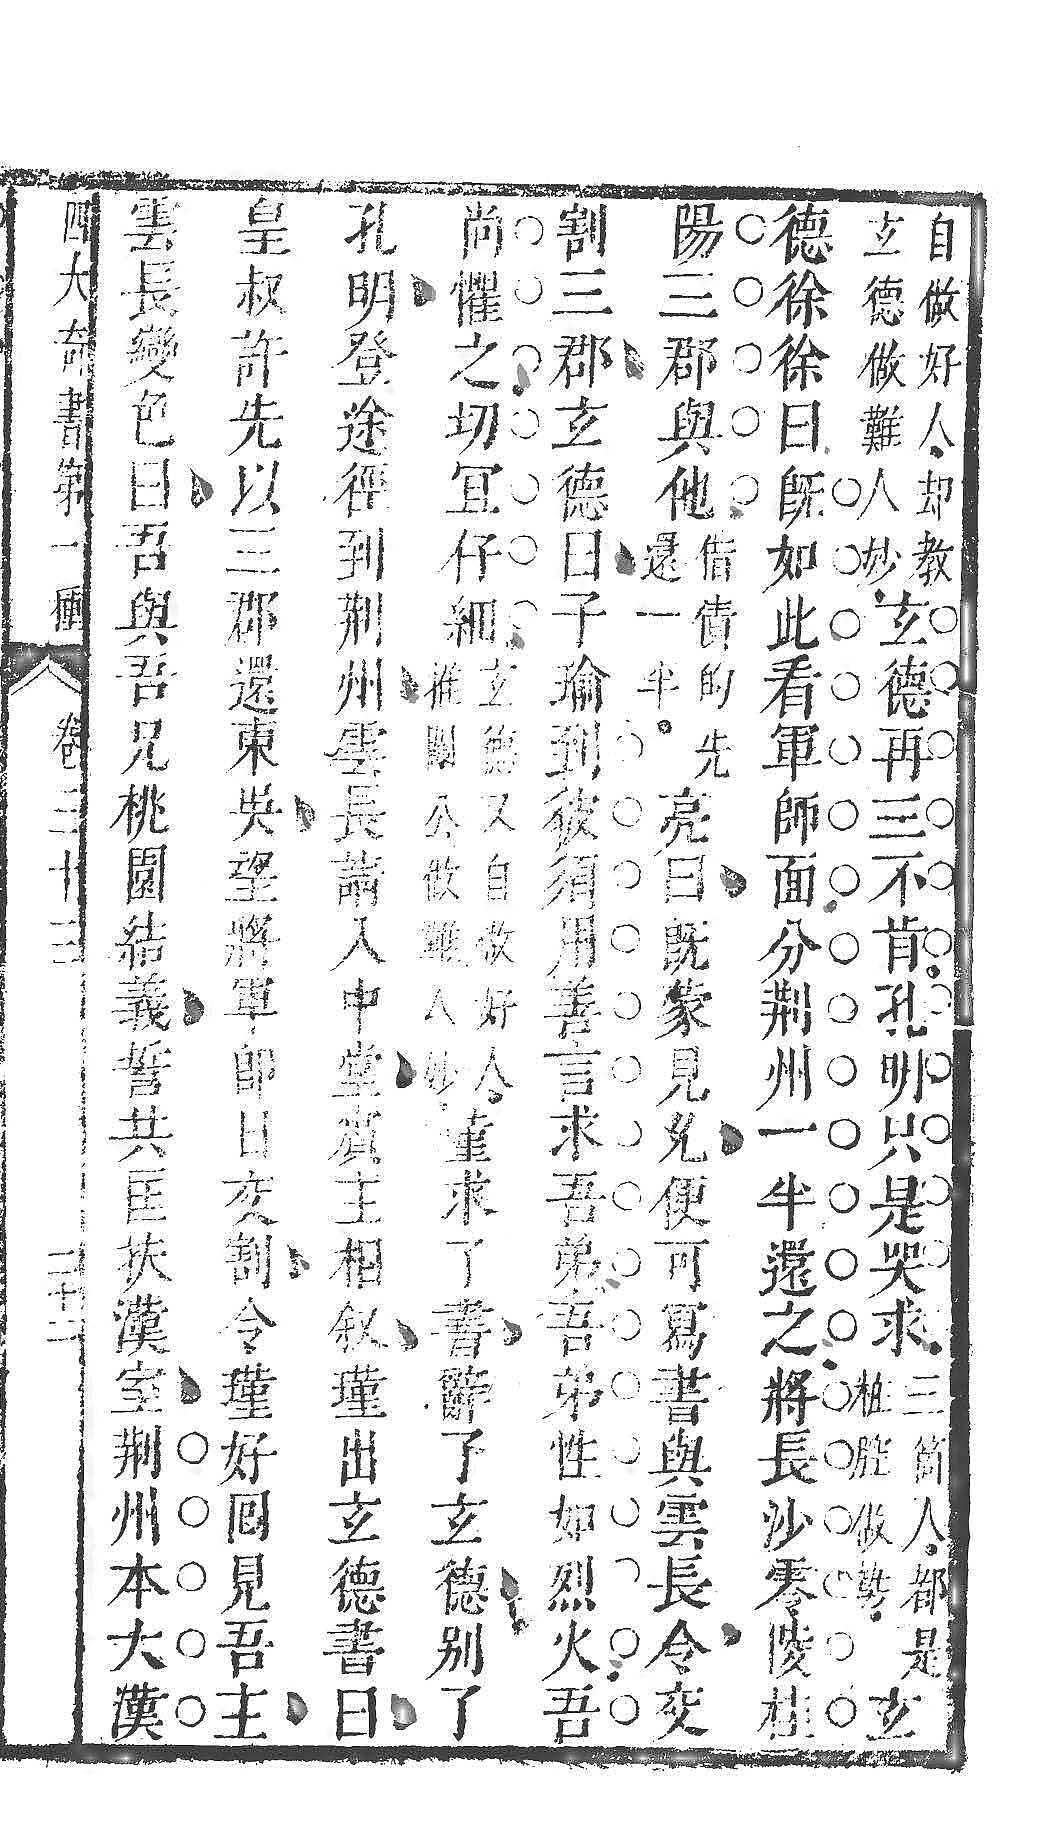 自做好人却教玄德做難人妙玄德再三不肯孔明只是哭求三箇人都是樁腔做勢玄
德徐徐曰旣如此看軍師面分荆州一半還之將長沙零陵桂
陽三郡與他借債的先還一半亮曰旣蒙見允便可寫書與雲長令交
割三郡玄德曰子瑜到彼須用善言求吾弟吾弟性如烈火吾
尚懼之切宜仔細玄德又自做好人推關公做難人妙瑾求了書辭了玄德別了
孔明登途徑到荆州雲長請入中堂賓主相叙瑾出玄德書曰
皇叔許先以三郡還東吳望將軍卽日交割令瑾好回見吾主
雲長變色曰吾與吾兄桃園結義誓共匡扶漢室荆州本大漢
四大奇書第一種 卷三十三 二十二